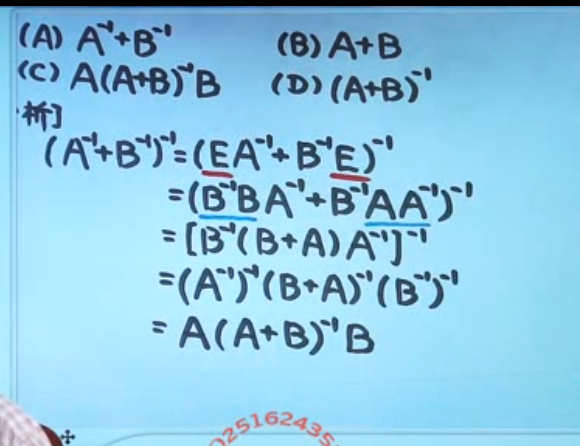 (A) A⁻¹+B⁻¹ (B) A+B
(C) A(A+B)⁻¹B (D) (A+B)⁻¹
析]
(A⁻¹+B⁻¹)⁻¹=(EA⁻¹+B⁻¹E)⁻¹
=(B⁻¹BA⁻¹+B⁻¹AA⁻¹)⁻¹
=[B⁻¹(B+A)A⁻¹]⁻¹
=(A⁻¹)⁻¹(B+A)⁻¹(B⁻¹)⁻¹
=A(A+B)⁻¹B